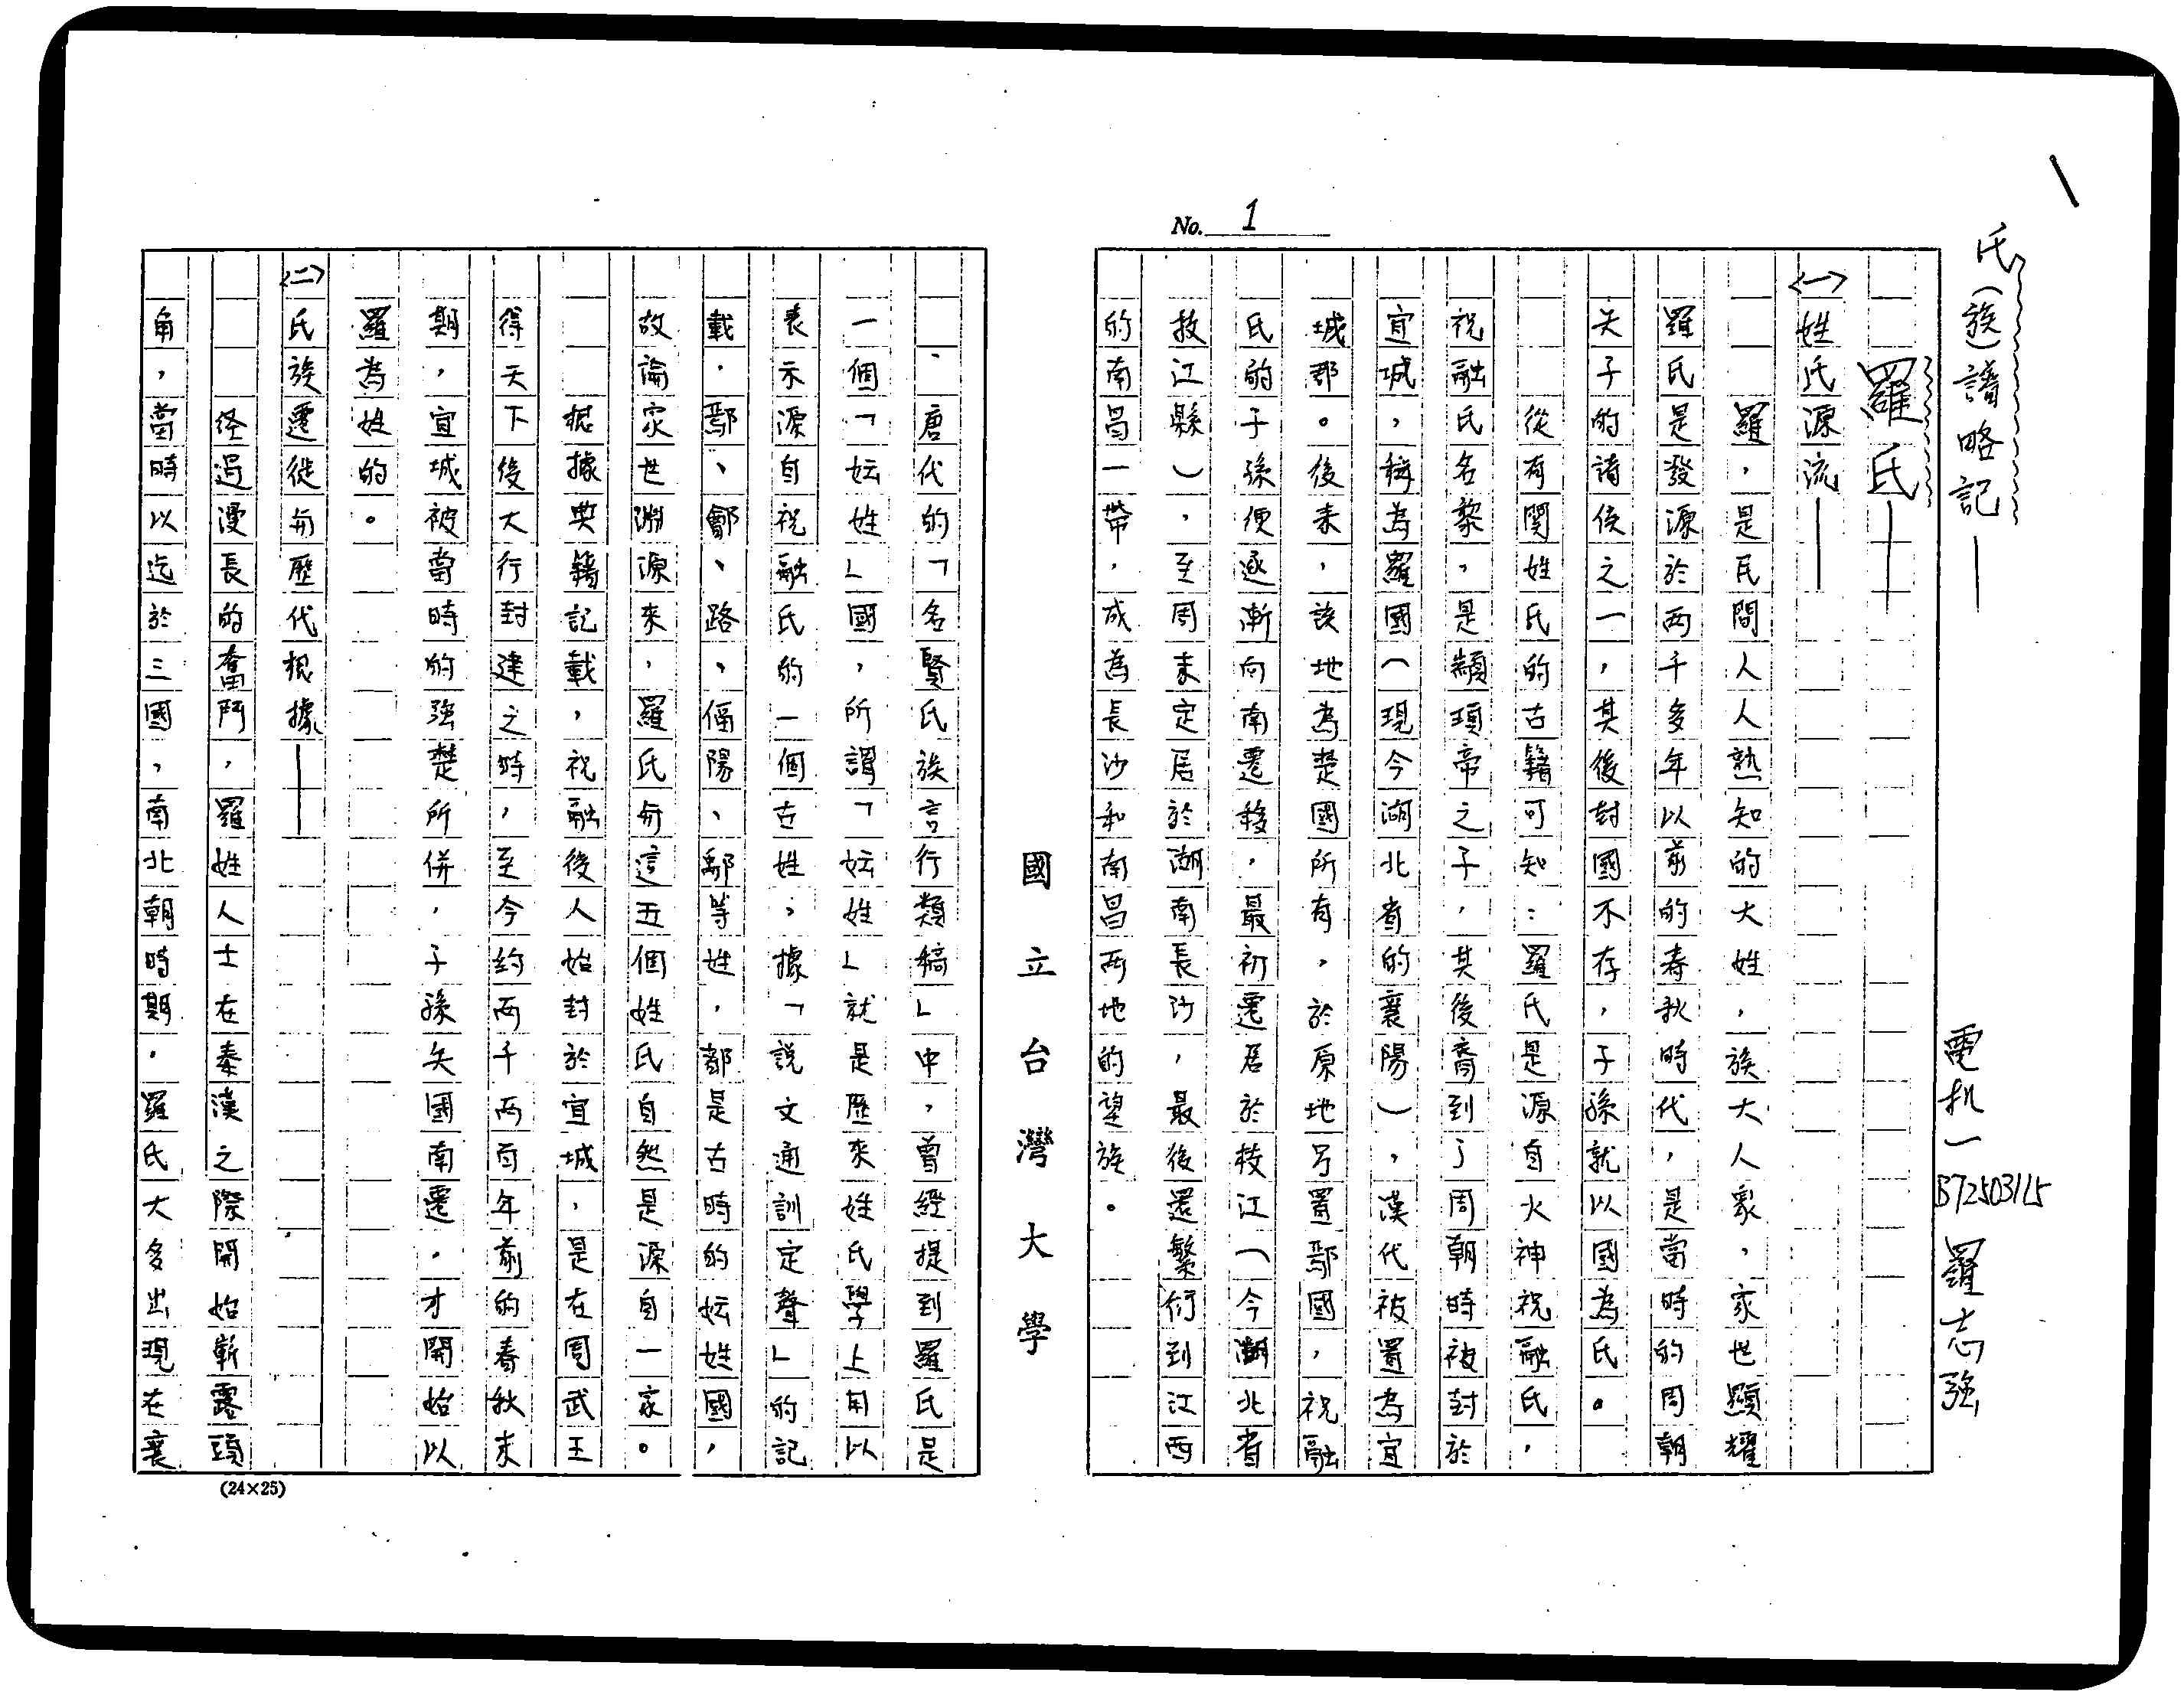 氏(族)譜略記—
電机一 B72503115 羅志強
No. 1
羅氏—
<一>姓氏源流—
羅，是民間人人熟知的大姓，族大人眾，家世顯耀
羅氏是發源於兩千多年以前的春秋時代，是當時的周朝
天子的諸侯之一，其後封國不存，子孫就以國為氏。
從有関姓氏的古籍可知：羅氏是源自火神祝融氏，
祝融氏名黎，是顓頊帝之子，其後裔到了周朝時被封於
宜城，稱為羅國(現今湖北省的襄陽)，漢代被置為宜
城郡。後来，該地為楚國所有，於原地另置鄢國，祝融
氏的子孫便逐漸向南遷移，最初遷居於枝江(今湖北省
枝江縣)，至周末定居於湖南長沙，最後還繁衍到江西
的南昌一帶，成為長沙和南昌兩地的望族。
國立台灣大學
、唐代的「名賢氏族言行類稿」中，曾經提到羅氏是
一個「妘姓」國，所謂「妘姓」就是歷來姓氏學上用以
表示源自祝融氏的一個古姓，據「説文通訓定聲」的記
載，鄢、鄶、路、偪陽、鄅等姓，都是古時的妘姓國，
故論家世淵源來，羅氏與這五個姓氏自然是源自一家。
根據典籍記載，祝融後人始封於宜城，是在周武王
得天下後大行封建之時，至今約兩千兩百年前的春秋末
期，宜城被當時的強楚所併，子孫失國南遷，才開始以
羅為姓的。
<二>氏族遷徙與歷代根據—
经過漫長的奮鬥，羅姓人士在秦漢之際開始嶄露頭
角，當時以迄於三國，南北朝時期，羅氏大多出現在襄
(24×25)